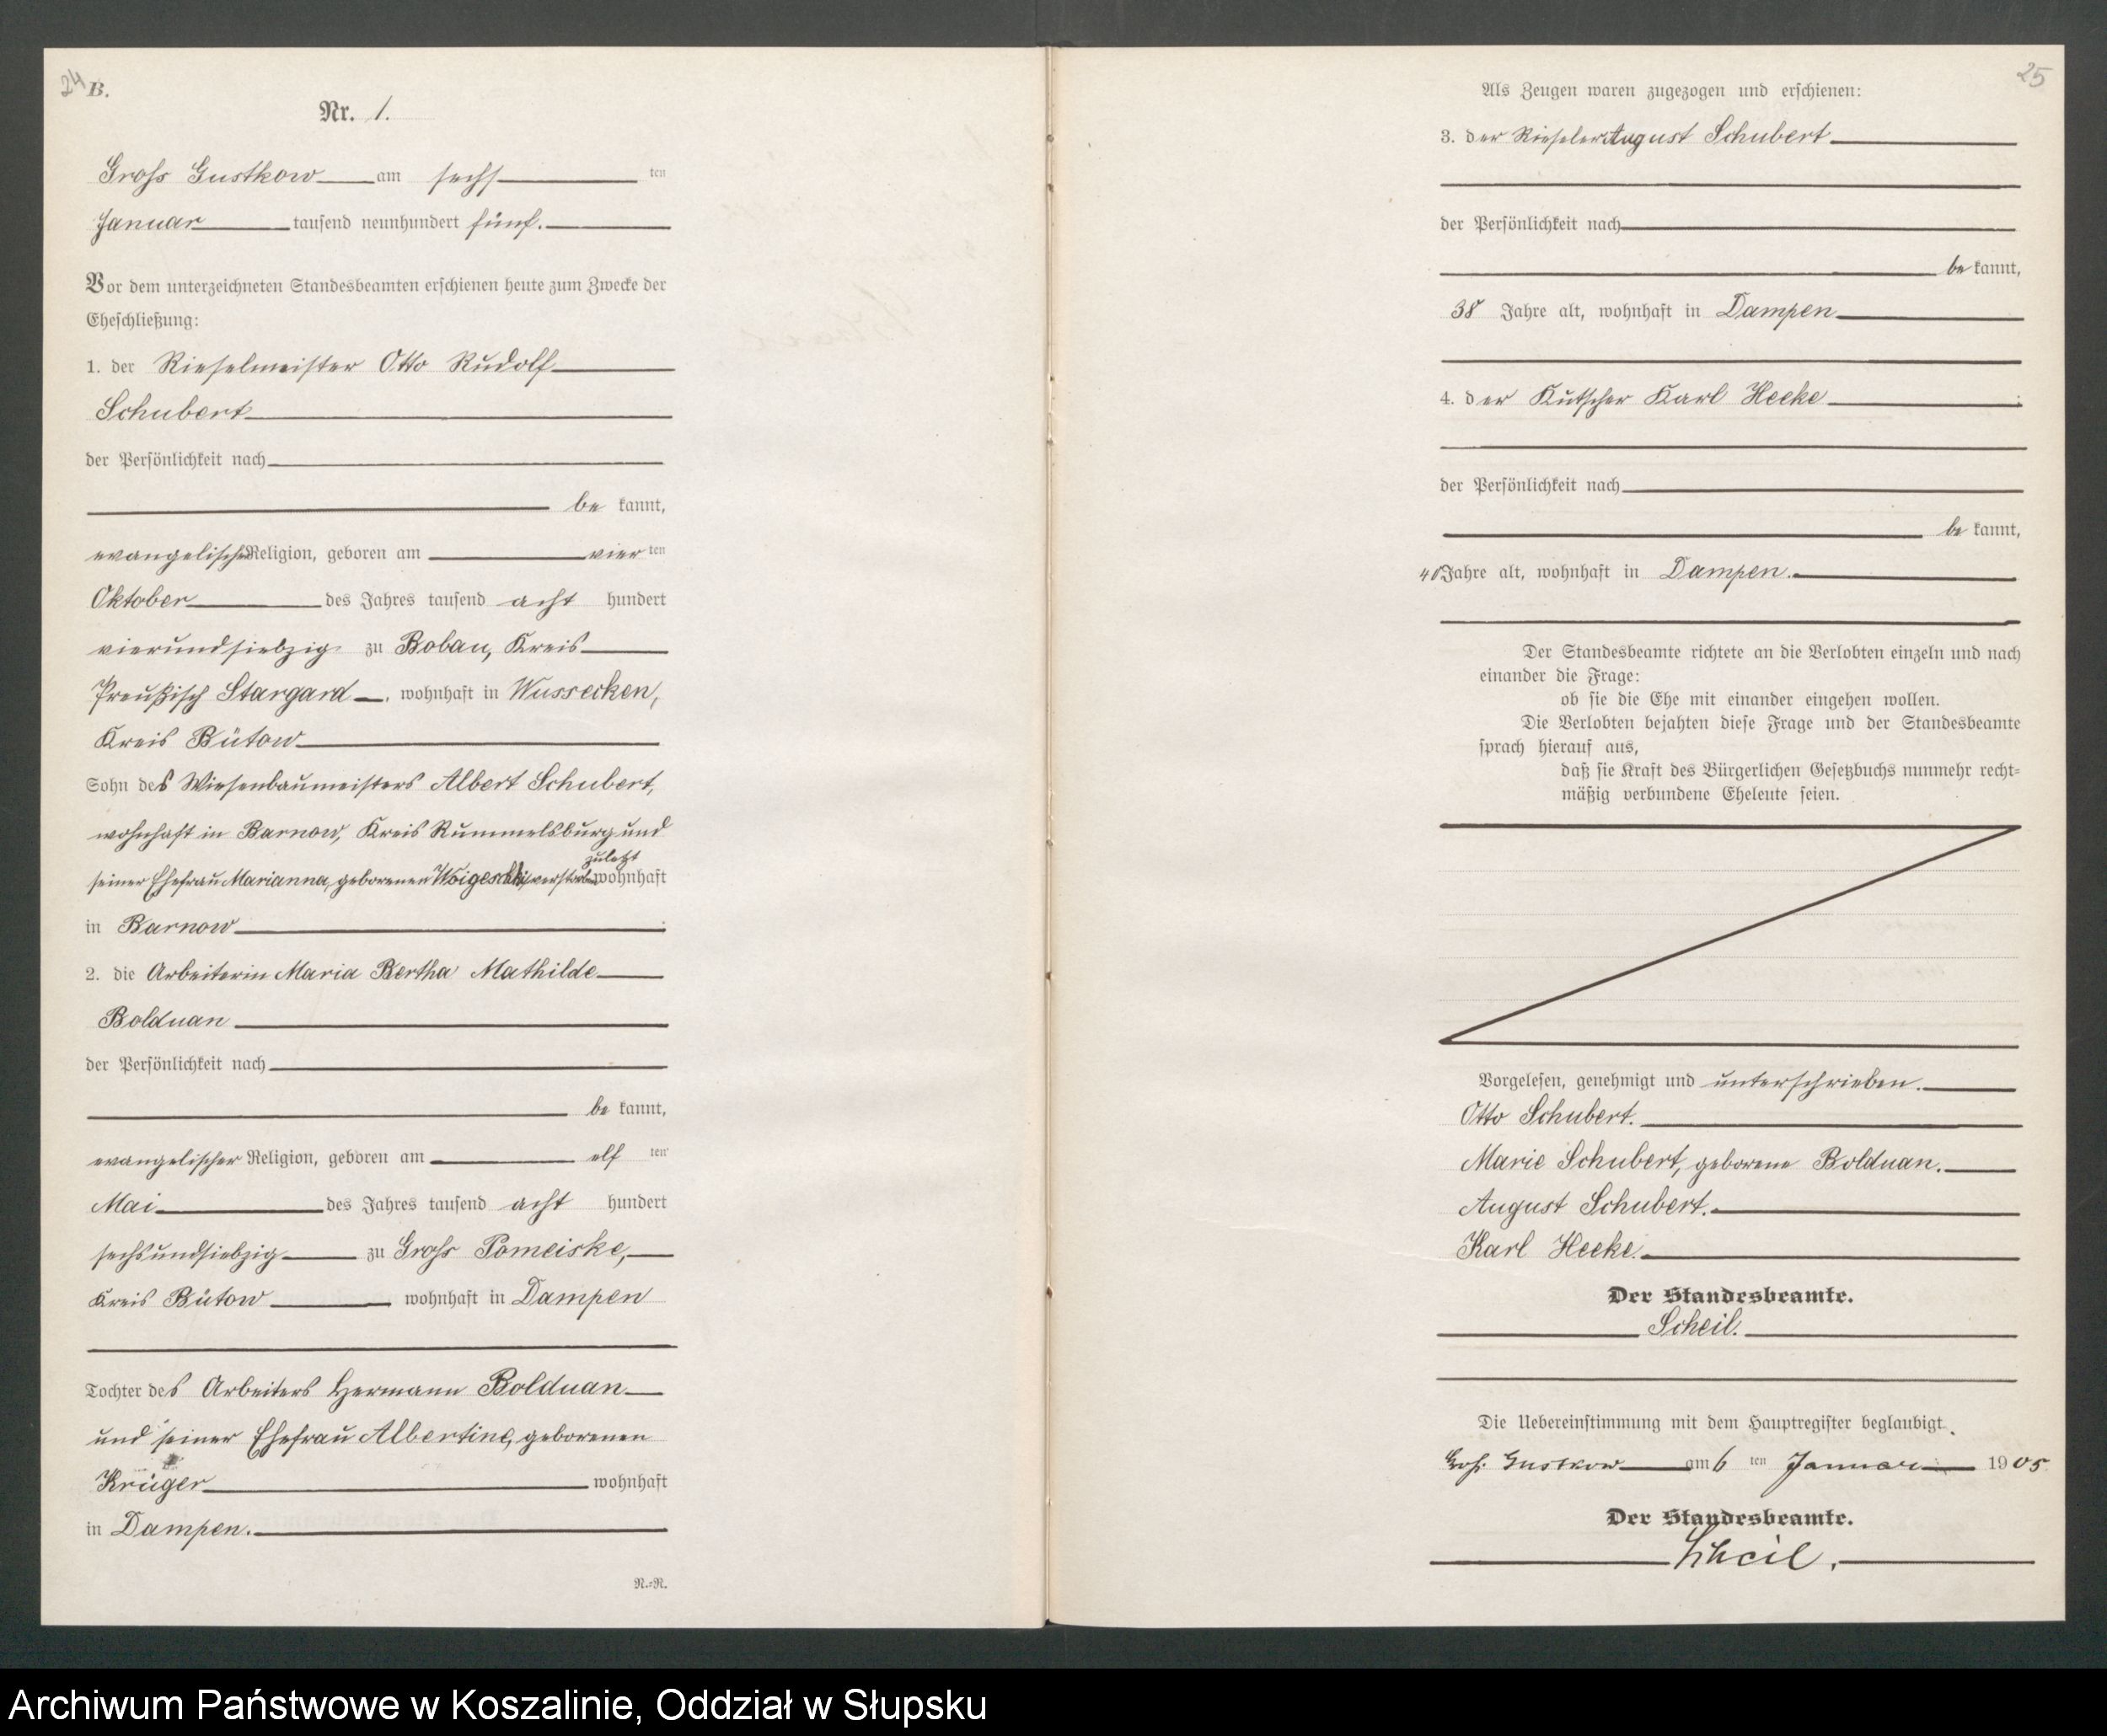 24 B.
Nr. 1.
Groß Gustkow am sechs ten
Januar tausend neunhundert fünf.
Vor dem unterzeichneten Standesbeamten erschienen heute zum Zwecke der
Eheschließung:
1. der Rieselmeister Otto Rudolf
Schubert
der Persönlichkeit nach
be kannt,
evangelischer Religion, geboren am vier ten
Oktober des Jahres tausend acht hundert
vierundsiebzig zu Bobau, Kreis
Preußisch Stargard, wohnhaft in Wussecken,
Kreis Bütow
Sohn des Wiesenbaumeisters Albert Schubert,
wohnhaft in Barnow, Kreis Rummelsburg und
zuletzt
seiner Ehefrau Marianna, geborenen verstorben wohnhaft
in Barnow
2. die Arbeiterin Maria Bertha Mathilde
Bolduan
der Persönlichkeit nach
be kannt,
evangelischer Religion, geboren am elf ten
Mai des Jahres tausend acht hundert
sechsundsiebzig zu Groß Pomeiske,
Kreis Bütow wohnhaft in Dampen
Tochter des Arbeiters Hermann Bolduan
und seiner Ehefrau Albertine, geborenen
Krüger wohnhaft
in Dampen.
N.-R.
25
Als Zeugen waren zugezogen und erschienen:
3. der Rieseler August Schubert
der Persönlichkeit nach
be kannt,
38 Jahre alt, wohnhaft in Dampen
4. der Kutscher Karl Heeke
der Persönlichkeit nach
be kannt,
40 Jahre alt, wohnhaft in Dampen.
Der Standesbeamte richtete an die Verlobten einzeln und nach
einander die Frage:
ob sie die Ehe mit einander eingehen wollen.
Die Verlobten bejahten diese Frage und der Standesbeamte
sprach hierauf aus,
daß sie Kraft des Bürgerlichen Gesetzbuchs nunmehr recht-
mäßig verbundene Eheleute seien.
Vorgelesen, genehmigt und unterschrieben.
Otto Schubert.
Marie Schubert, geborene Bolduan.
August Schubert.
Karl Heeke.
Der Standesbeamte.
Scheil.
Die Uebereinstimmung mit dem Hauptregister beglaubigt.
Groß Gustkow am 6 ten Januar 1905
Der Standesbeamte.
Scheil.
Archiwum Państwowe w Koszalinie, Oddział w Słupsku